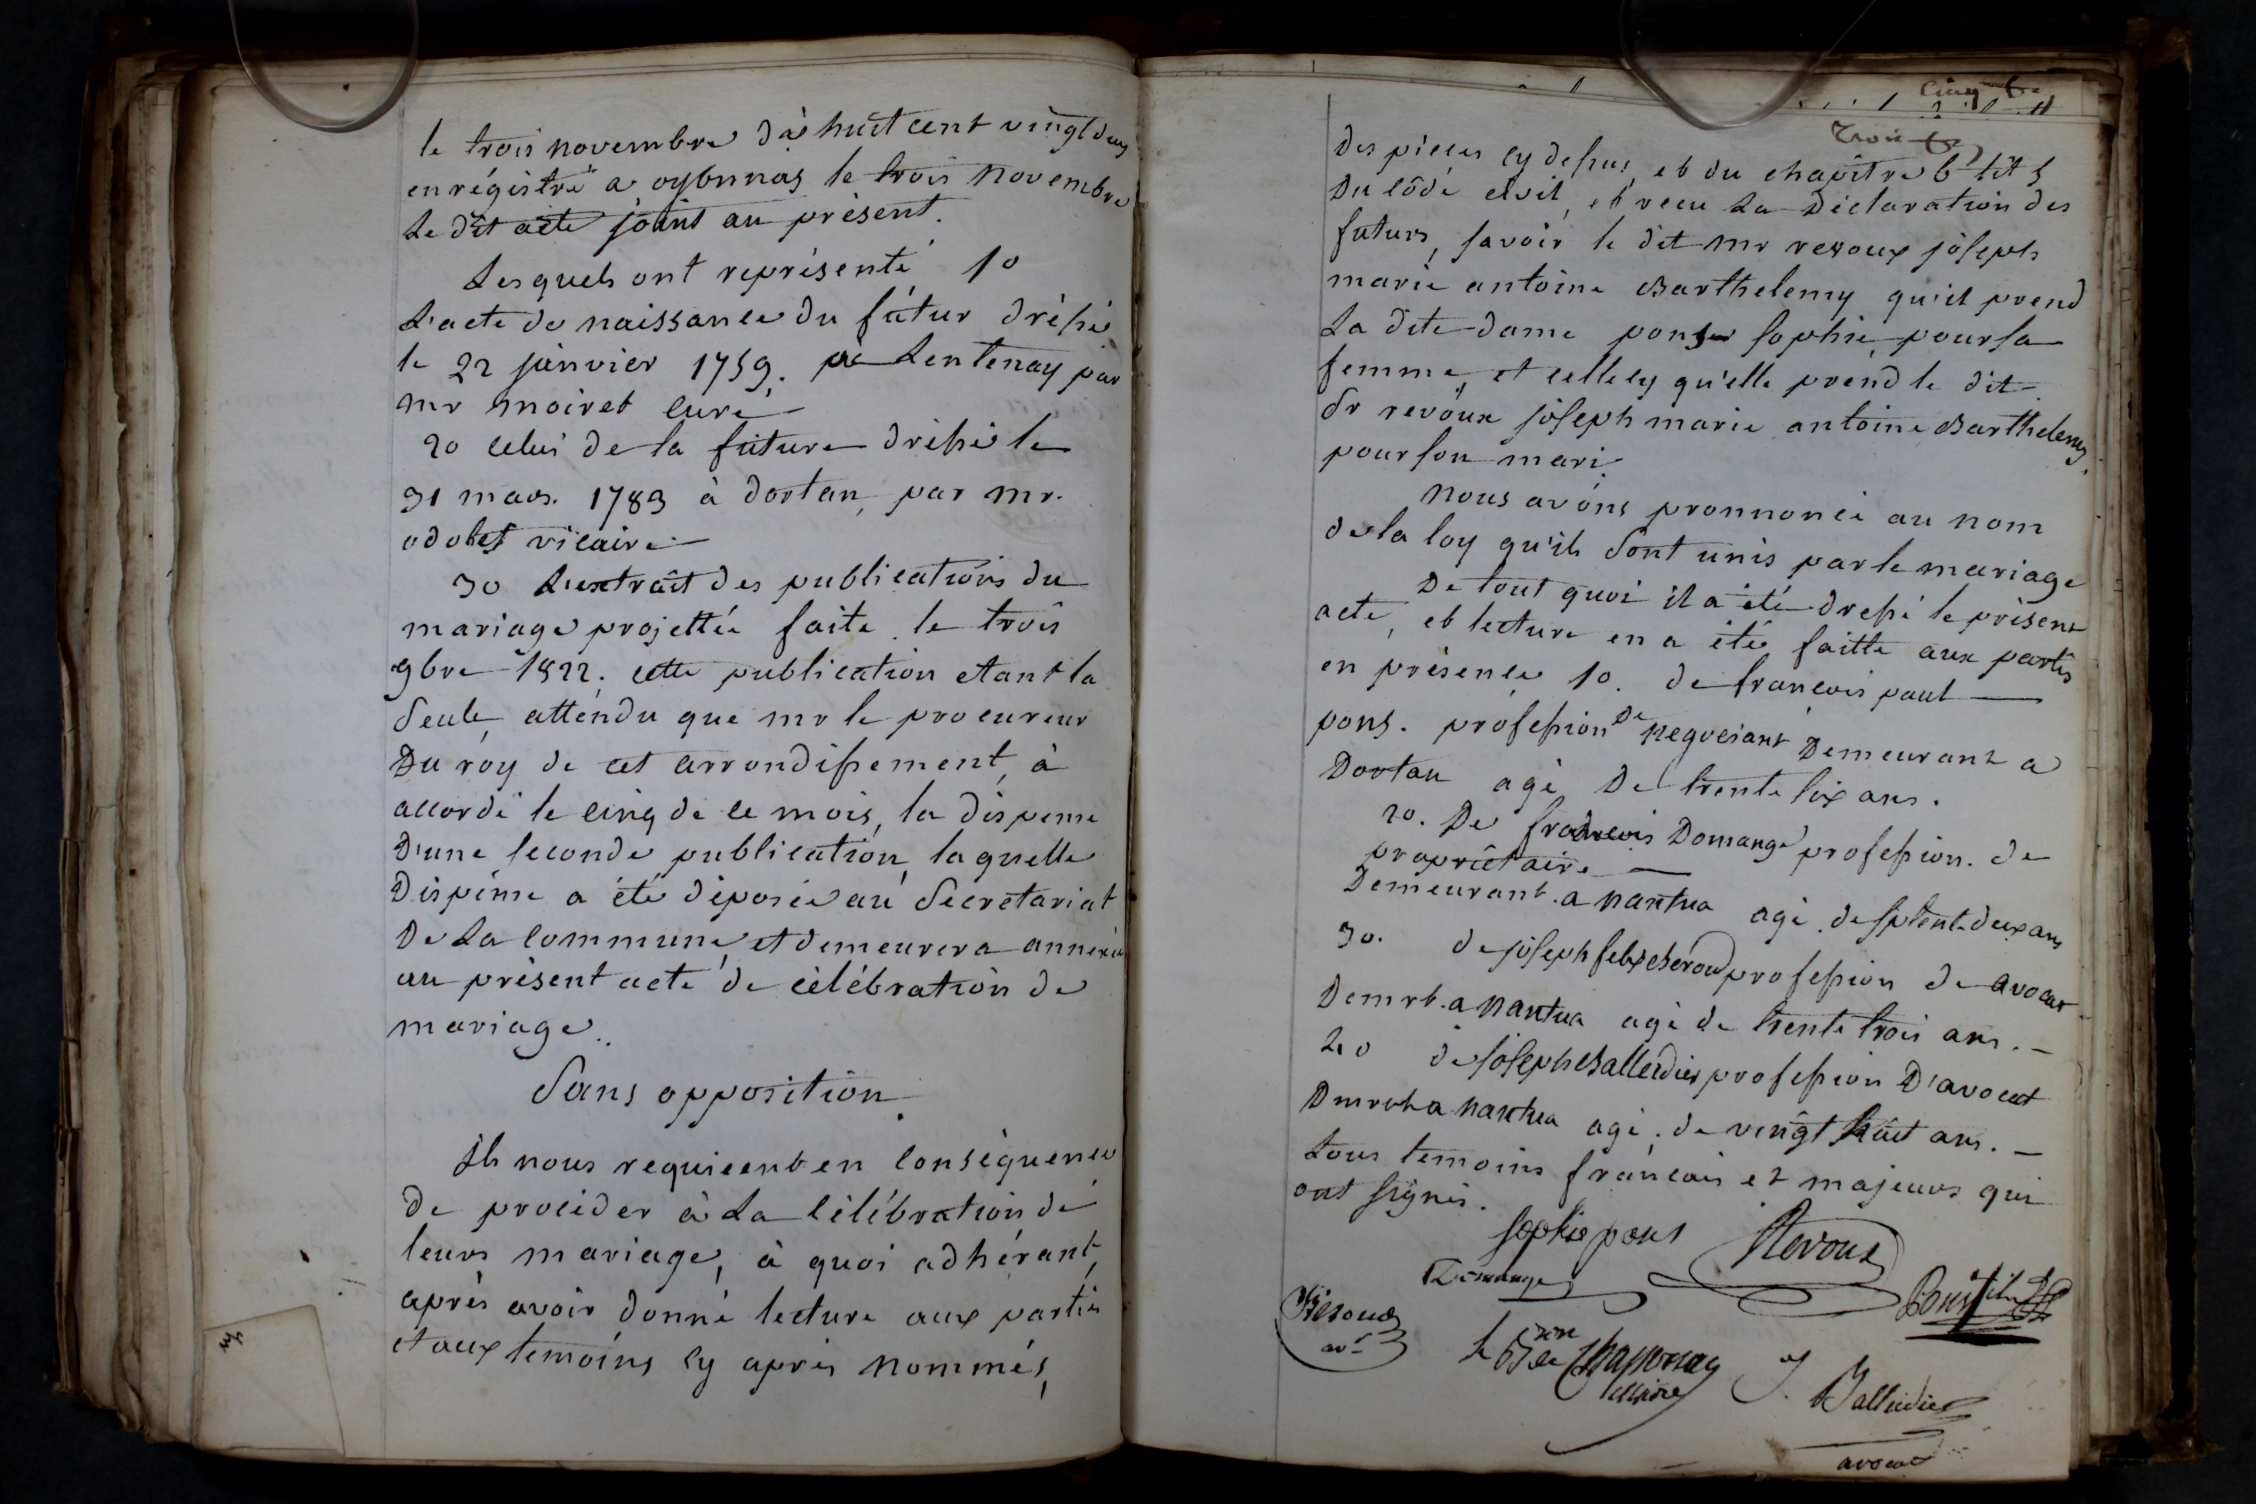 le trois novembre dix huit cent vingt deux
enrégistré a oyonnas le trois novembre
Le dit acte joint au présent.
Lesquels ont représenté 1o
L'acte de naissance du fùtur dréssé
le 22 jànvier 1759. à Lentenay par
mr moiret curé
2o celui de la fùture dréssé le
31 mars. 1783 à dortan, par mr.
odobet vicaire
3o L'extrait des publications du
mariage projettée faite le trois
9bre 1822. cette publication etant la
Seule, attendu que mr le procureur
Du roy de cet arrondissement, à
accordé le cinq de ce mois, la dispense
D'une seconde publication, laquelle
Dispense a été déposée au Secrétariat
De La commune, et demeurera annexée
au présent acte de célébration de
mariage.
Sans opposition.
ils nous requierent en conséquence
de procéder à La célébration de
leurs mariage, à quoi adhérant,
après avoir donné lecture aux parties
et aux temoins cy après nommés,
Cinqte
trois
Des pièces cy dessus, et du chapitre 6 tit 5
Du côdé civil, et recu La Déclaration des
futurs, savoir le dit mr revoux joseph
marie antoine Barthelemy qu'il prend
La dite dame pons sophie, pour sa
femme, et celle cy qu'elle prend le dit
Sr revoux joseph marie antoine Barthelemy,
pour son mari
nous avons pronnoncé au nom
de la loy qu'ils sont unis par le mariage
De tout quoi il a été dressé le présent
acte, et lecture en a été faitte aux parties
en présence 1o. de francois paul
pons. profession De negociant Demeurant a
Dortan agé De trente six ans.
2o. De francois Domange profession. de
propriétaire
Demeurant. a nantua agé. de septente deux ans
3o. de joseph felix Béroud profession de avocat
Demrt. a Nantua agé de trente trois ans.
4o de joseph Balleidier profession D'avocat
Dmrant a nantua agé. de vingt huit ans.
tous temoins francais et majeurs qui
ont signés.
sophie pons Revoux
Domange
Béroud
avt
Pons
le Bon de
Maire
J. Balleidier
avocat